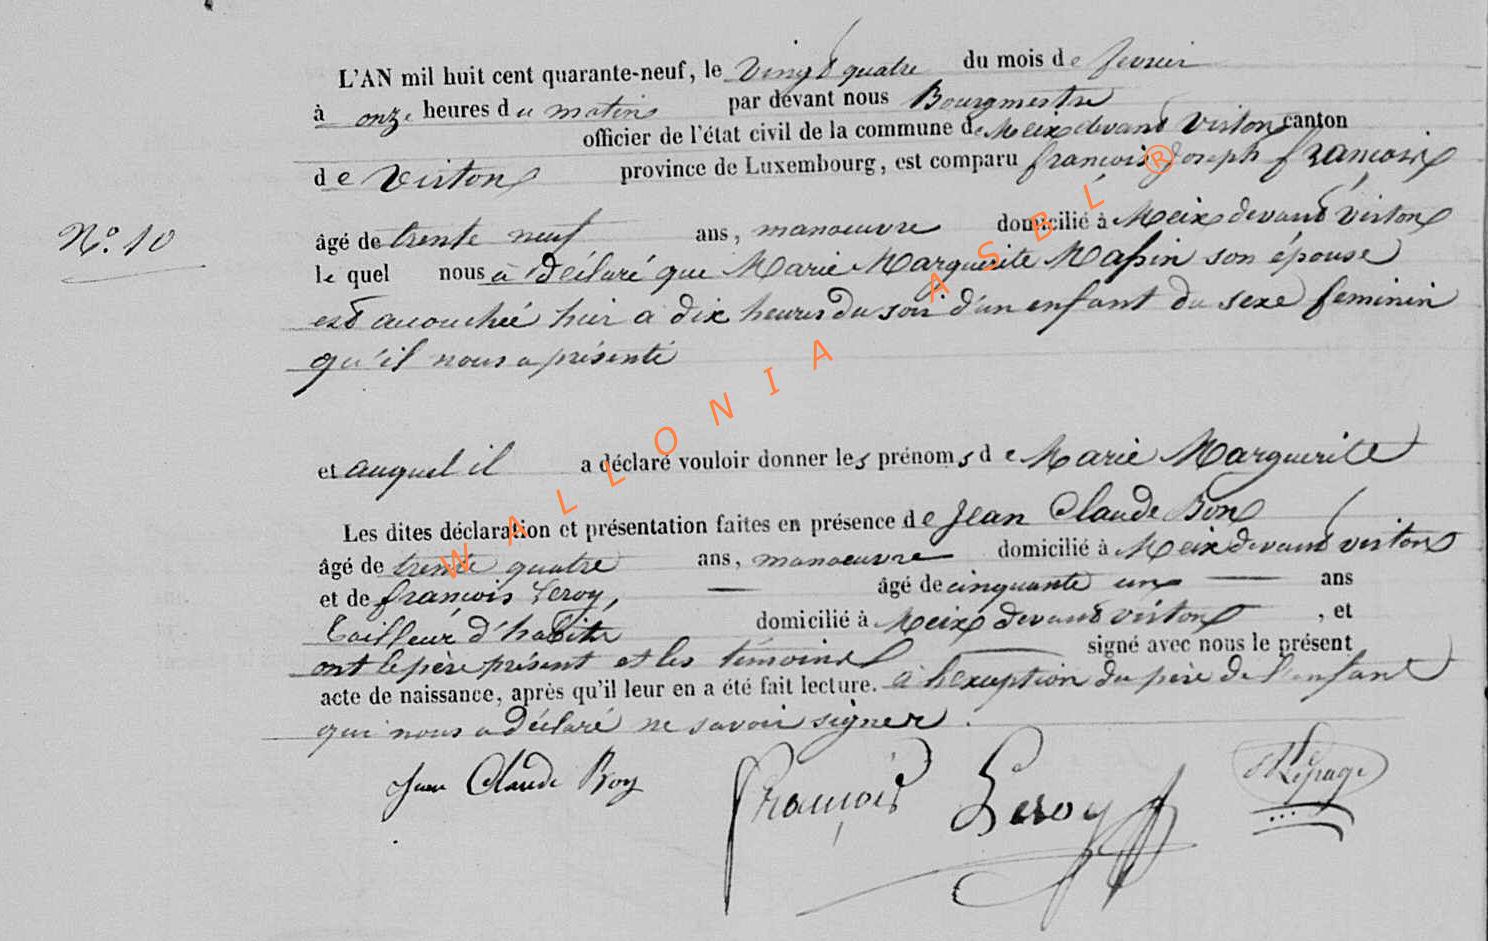 L'AN mil huit cent quarante-neuf, le vingt quatre du mois de fevrier
à onze heures du matin par devant nous Bourgmestre
officier de l'état civil de la commune de Meix devant Virton canton
de Virton province de Luxembourg, est comparu françois Joseph françois
N° 10
âgé de trente neuf ans, manoeuvre domicilié à Meix devant Virton
le quel nous à déclaré que Marie Marguerite son épouse
est accouchée hier a dix heures du soir d'un enfant du sexe feminin
qu'il nous a présenté
et auquel il a déclaré vouloir donner les prénoms de Marie Marguerite
Les dites déclaration et présentation faites en présence de Jean Claude
âgé de trente quatre ans, manoeuvre domicilié à Meix devant virton
et de françois Leroy, âgé de cinquante un ans
tailleur d'habits domicilié à Meix devant virton , et
ont le père présent et les témoins signé avec nous le présent
acte de naissance, après qu'il leur en a été fait lecture. à l'exception du père de l'enfant
qui nous a déclaré ne savoir signer.
Jean Claude
François Leroy
Lepage
WALLONIA ASBL ®